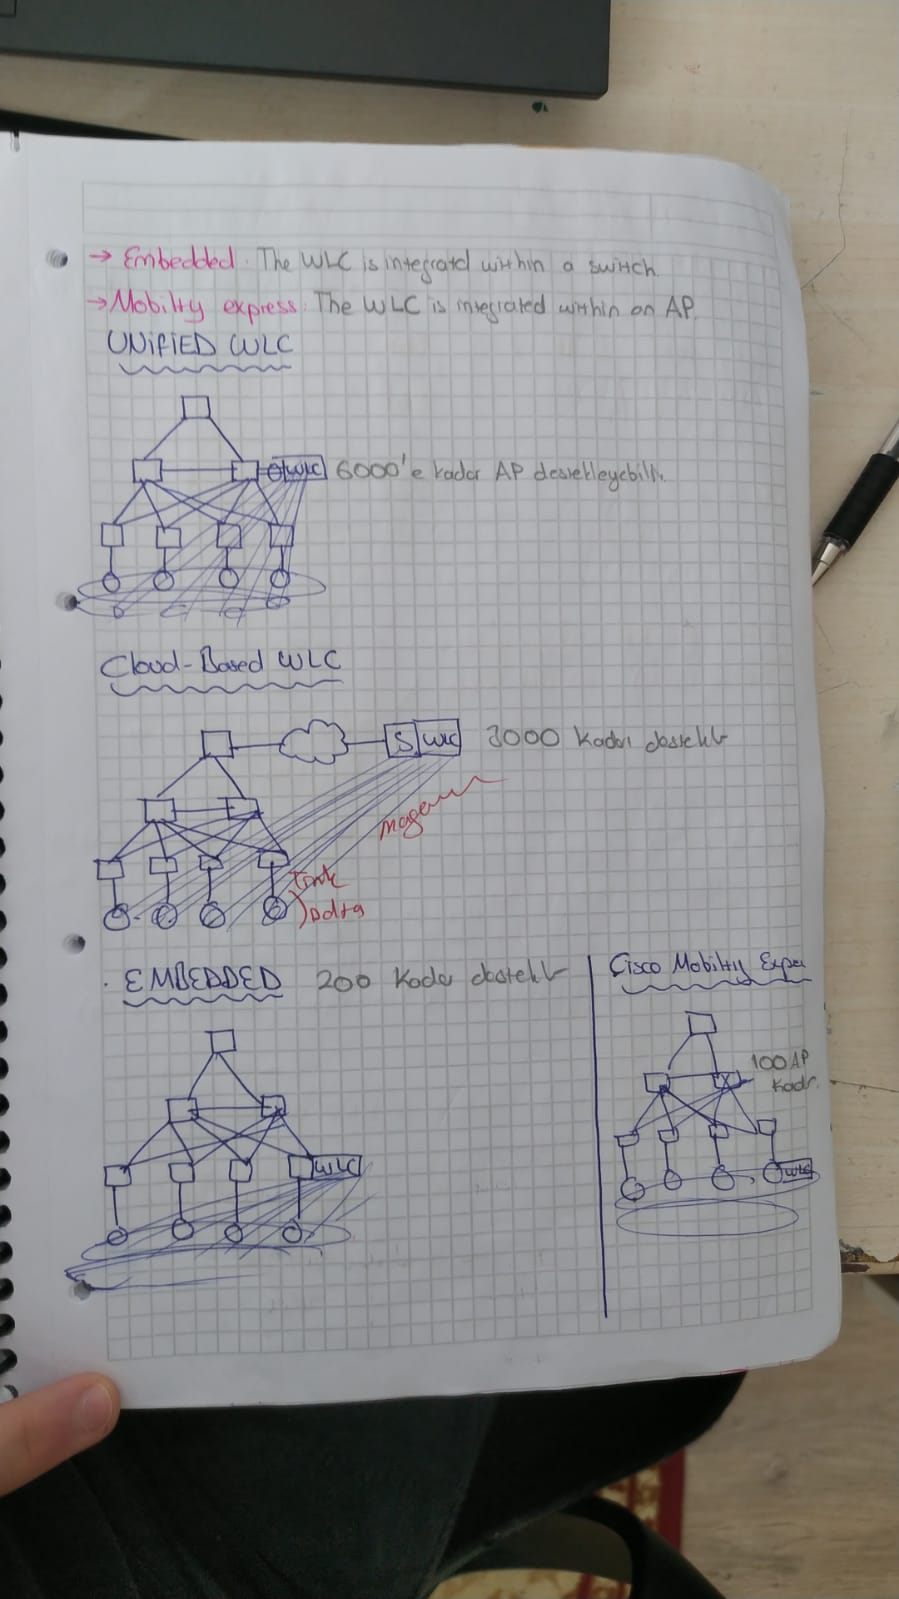 → Embedded. The WLC is integratd within a switch.
→ Mobilty express: The WLC is integrated within an AP.
UNiFiED WLC
WLC 6000'e kadar AP destekleyebilir.
Cloud-Based WLC
S WLC 3000 Kadar destekler
Data
EMBEDDED 200 Kadar destekler
WLC
Cisco Mobilty Expre
100 AP
Kadr.
WLC